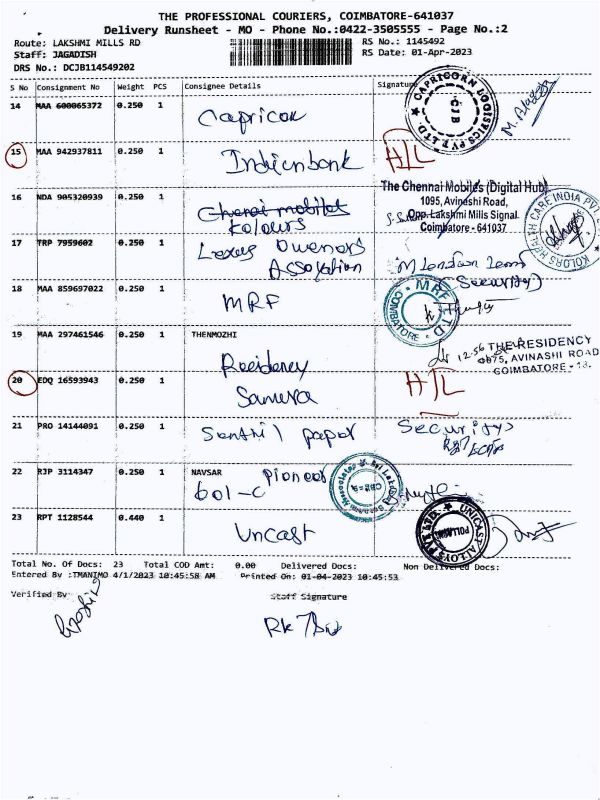 THE PROFESSIONAL COURIERS, COIMBATORE-641037
Delivery Runsheet - MO - Phone No.:0422-3505555 - Page No.:2
Route: LAKSHMI MILLS RD RS No.: 1145492
Staff: JAGADISH RS Date: 01-Apr-2023
DRS No.: DCJB114549202
S No Consignment No Weight PCS Consignee Details Signature
14 MAA 600065372 0.250 1 Capricon
CAPRICORN LOGISTICS PVT LTD CJB
15 MAA 942937811 0.250 1 Indienbank H/L
The Chennai Mobiles (Digital Hub)
1095, Avinashi Road,
Opp. Lakshmi Mills Signal.
Coimbatore - 641037
16 NDA 905320939 0.250 1 Chenai mobiles
Kolours
KOLORS HEALTH CARE INDIA PVT
17 TRP 7959602 0.250 1 Lexus Owenors
Assoyation
(Security)
18 MAA 859697022 0.250 1 MRF
MRF LTD COIMBATORE
19 MAA 297461546 0.250 1 THENMOZHI
Residency
12.56 THE RESIDENCY
1075, AVINASHI ROAD
COIMBATORE - 18.
20 EDQ 16593943 0.250 1 Samura H/L
21 PRO 14144091 0.250 1 Santhil papar Security
22 RJP 3114347 0.250 1 NAVSAR Pioneer
bol-c
23 RPT 1128544 0.440 1 Uncast
UNICAST ALLOYS PVT LTD. POLLACHI
Total No. Of Docs: 23 Total COD Amt: 0.00 Delivered Docs: Non Delivered Docs:
Entered By :TMANIMO 4/1/2023 10:45:58 AM Printed On: 01-04-2023 10:45:53
Verified By Staff Signature